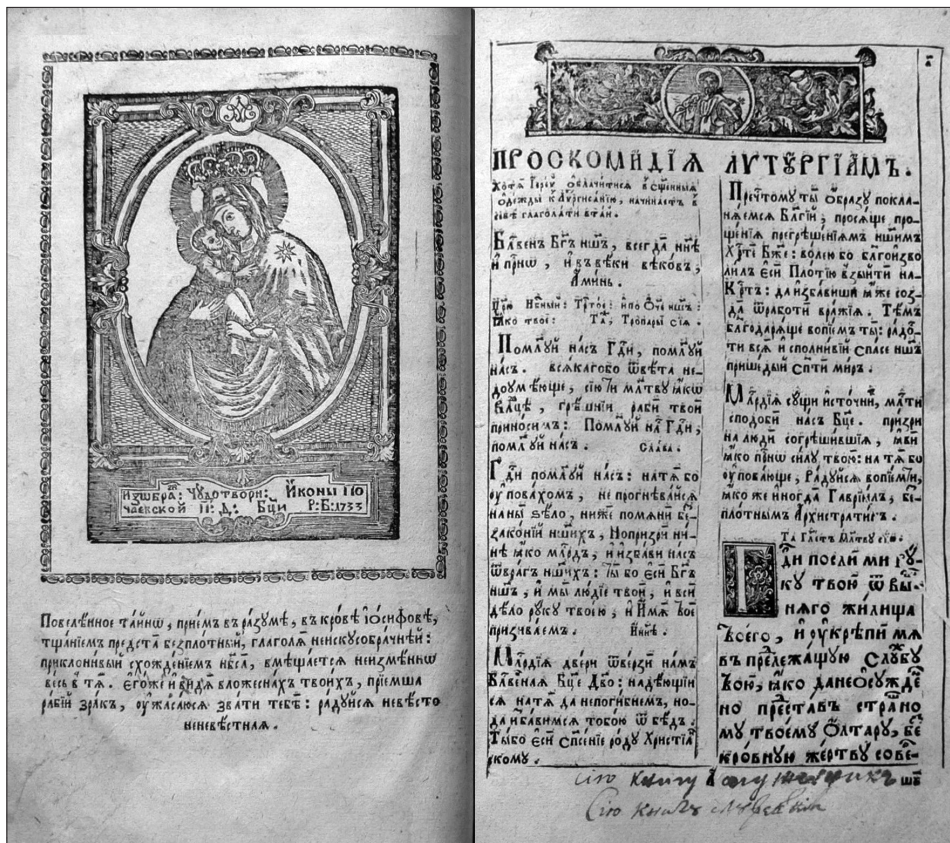 И҆зѡбра: Чꙋдотворн: И҆коны По
чаевской П: Д: Бцы Р: Б: 1733
Повелѣнное та́йнѡ, прїемъ въ ра́зꙋмѣ, въ кро́вѣ і҆ѡ́сифовѣ,
тща́нїемъ предста̀ безпло́тный, глаго́лѧ неискꙋсобра́чнѣй:
приклони́вый схожде́нїемъ нб҃са̀, вмѣща́етсѧ неизмѣ́ннѡ
весь в̾ тѧ̀. Е҆го́же и҆ ви́дѧ в̾ложесна́хъ твои́хъ, прїе́мша
ра́бїй зра́къ, оу҆жаса́юсѧ зва́ти тебѣ̀: ра́дꙋйсѧ невѣ́сто
неневѣ́стнаѧ.
ПРОСКОМИДІѦ
Хотѧ́й Іере́й ѻ҆блачи́тисѧ в̾ сщ҃е́нныѧ
ѻ҆де́жды к̾ начина́етъ в̾
глаго́лати
Бл҃ве́нъ Бг҃ъ нш҃ъ, всегда̀ нн҃ѣ
и҆ при́снѡ, и҆ въ вѣ́ки вѣкѡ́въ,
А҆ми́нь.
Цр҃ю̀ Нб҃ный: Трⷭ҇то́е: и҆ по О́ч҃е на́шъ:
Ꙗ҆́кѡ твоѐ: Та́, Тропары̀ сїѧ̀.
Поми́лꙋй на́съ Гдⷭ҇и, поми́лꙋй
на́съ. всѧ́кагобо ѿвѣ́та не-
доꙋмѣ́юще, сїю́ ти мл҃твꙋ ꙗ҆́кѡ
Влⷣцѣ, грѣ́шнїи рабѝ твоѝ
прино́симъ: Поми́лꙋй на́съ Гдⷭ҇и,
поми́лꙋй на́съ. Сла́ва.
Гдⷭ҇и поми́лꙋй на́съ: на тѧ́ бо
оу҆пова́хомъ, не прогнѣ́вайсѧ
на ны̀ ѕѣлѡ̀, нижѐ помѧнѝ без-
зако́нїй на́шихъ, Но при́зри ны́-
нѣ ꙗ҆́кѡ млⷭ҇рдъ, и҆ и҆зба́ви на́съ
ѿ вра̑гъ на́шихъ: Ты́ бо є҆сѝ Бг҃ъ
нш҃ъ, и҆ мы̀ лю́дїе твоѝ, и҆ всѝ
дѣ́ло рꙋкꙋ̀ твоє́ю, и҆ И҆́мѧ твоѐ
призыва́емъ. Нн҃ѣ.
Млⷭ҇рдїѧ две́ри ѿве́рзи на́мъ
Бл҃ве́ннаѧ Бц҃е Дв҃о: надѣ́ющїи-
сѧ на тѧ̀ да не поги́бнемъ, но-
да и҆зба́вимсѧ тобо́ю ѿ бѣ́дъ.
Ты́бо є҆сѝ Спⷭ҇е́нїе ро́дꙋ Христїа́н-
скомꙋ.
а҃
ЛѴТꙊРГІАМЪ.
Преч҃томꙋ тѝ ѻ҆́бразꙋ покла-
нѧ́емсѧ Бл҃гі́й, просѧ́ще про-
ще́нїѧ прегрѣше́нїѧмъ на́шимъ
Хрⷭ҇тѐ Бж҃е: во́лею бо бл҃гоизво́-
лилъ є҆сѝ Пло́тїю взы́йти на-
Крⷭ҇тъ: да и҆зба́виши ꙗ҆̀же соз-
да̀ ѿ рабо́ты вра́жїѧ. Тѣ́мъ
благодарѧ́ще вопїе́мъ ты̀: ра́до-
сти всѧ̑ и҆спо́лнивый Спа́се нш҃ъ
прише́дый спⷭ҇тѝ мі́ръ.
Млⷭ҇рдїѧ сꙋ́щи и҆сто́чни, мл҃ти
сподо́би на́съ Бц҃е. при́зри
на лю́ди согрѣши́вшїѧ, ꙗ҆вѝ
ꙗ҆́кѡ при́снѡ си́лꙋ твою̀: на тѧ́ бо
оу҆пова́юще, Ра́дꙋйсѧ вопїе́мъ ти,
ꙗ҆́коже и҆ногда̀ Гаврїи́лъ, без-
пло́тнымъ А҆рхистрати́гъ.
Та́ Глⷭ҇етъ Мл҃твꙋ сїю̀.
Гдⷭ҇и послѝ ми рꙋ-
кꙋ твою̀ ѿ вы́ш-
нѧго жили́ща
Твоегѡ̀, и҆ оу҆крѣпи́ мѧ
въ предлежа́щꙋю Слꙋ́жбꙋ
Твою̀, ꙗ҆́кѡ да неѡ҆сꙋжде́-
но предста́въ стра́шно-
мꙋ твоемꙋ̀ Ѻ҆лтарꙋ̀, без-
кро́внꙋю же́ртвꙋ сове-
шѣ
Сію книгу
Сію книгу